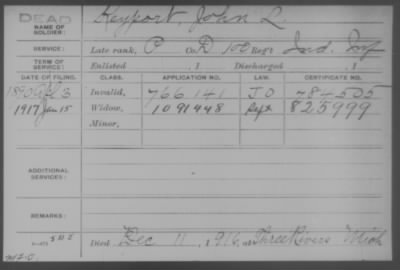 DEAD
NAME OF SOLDIER: Keyport, John L.
SERVICE: Late rank, P Co. D, 100 Reg't Ind. Inf
TERM OF SERVICE: Enlisted , 1 Discharged , 1
DATE OF FILING. CLASS. APPLICATION NO. LAW. CERTIFICATE NO.
1890 3 Invalid, 766141 784505
1917 Jan 15 Widow, 1091448 825999
Minor,
ADDITIONAL SERVICES:
REMARKS:
Died Dec 11, 1916, at Three Rivers Mich